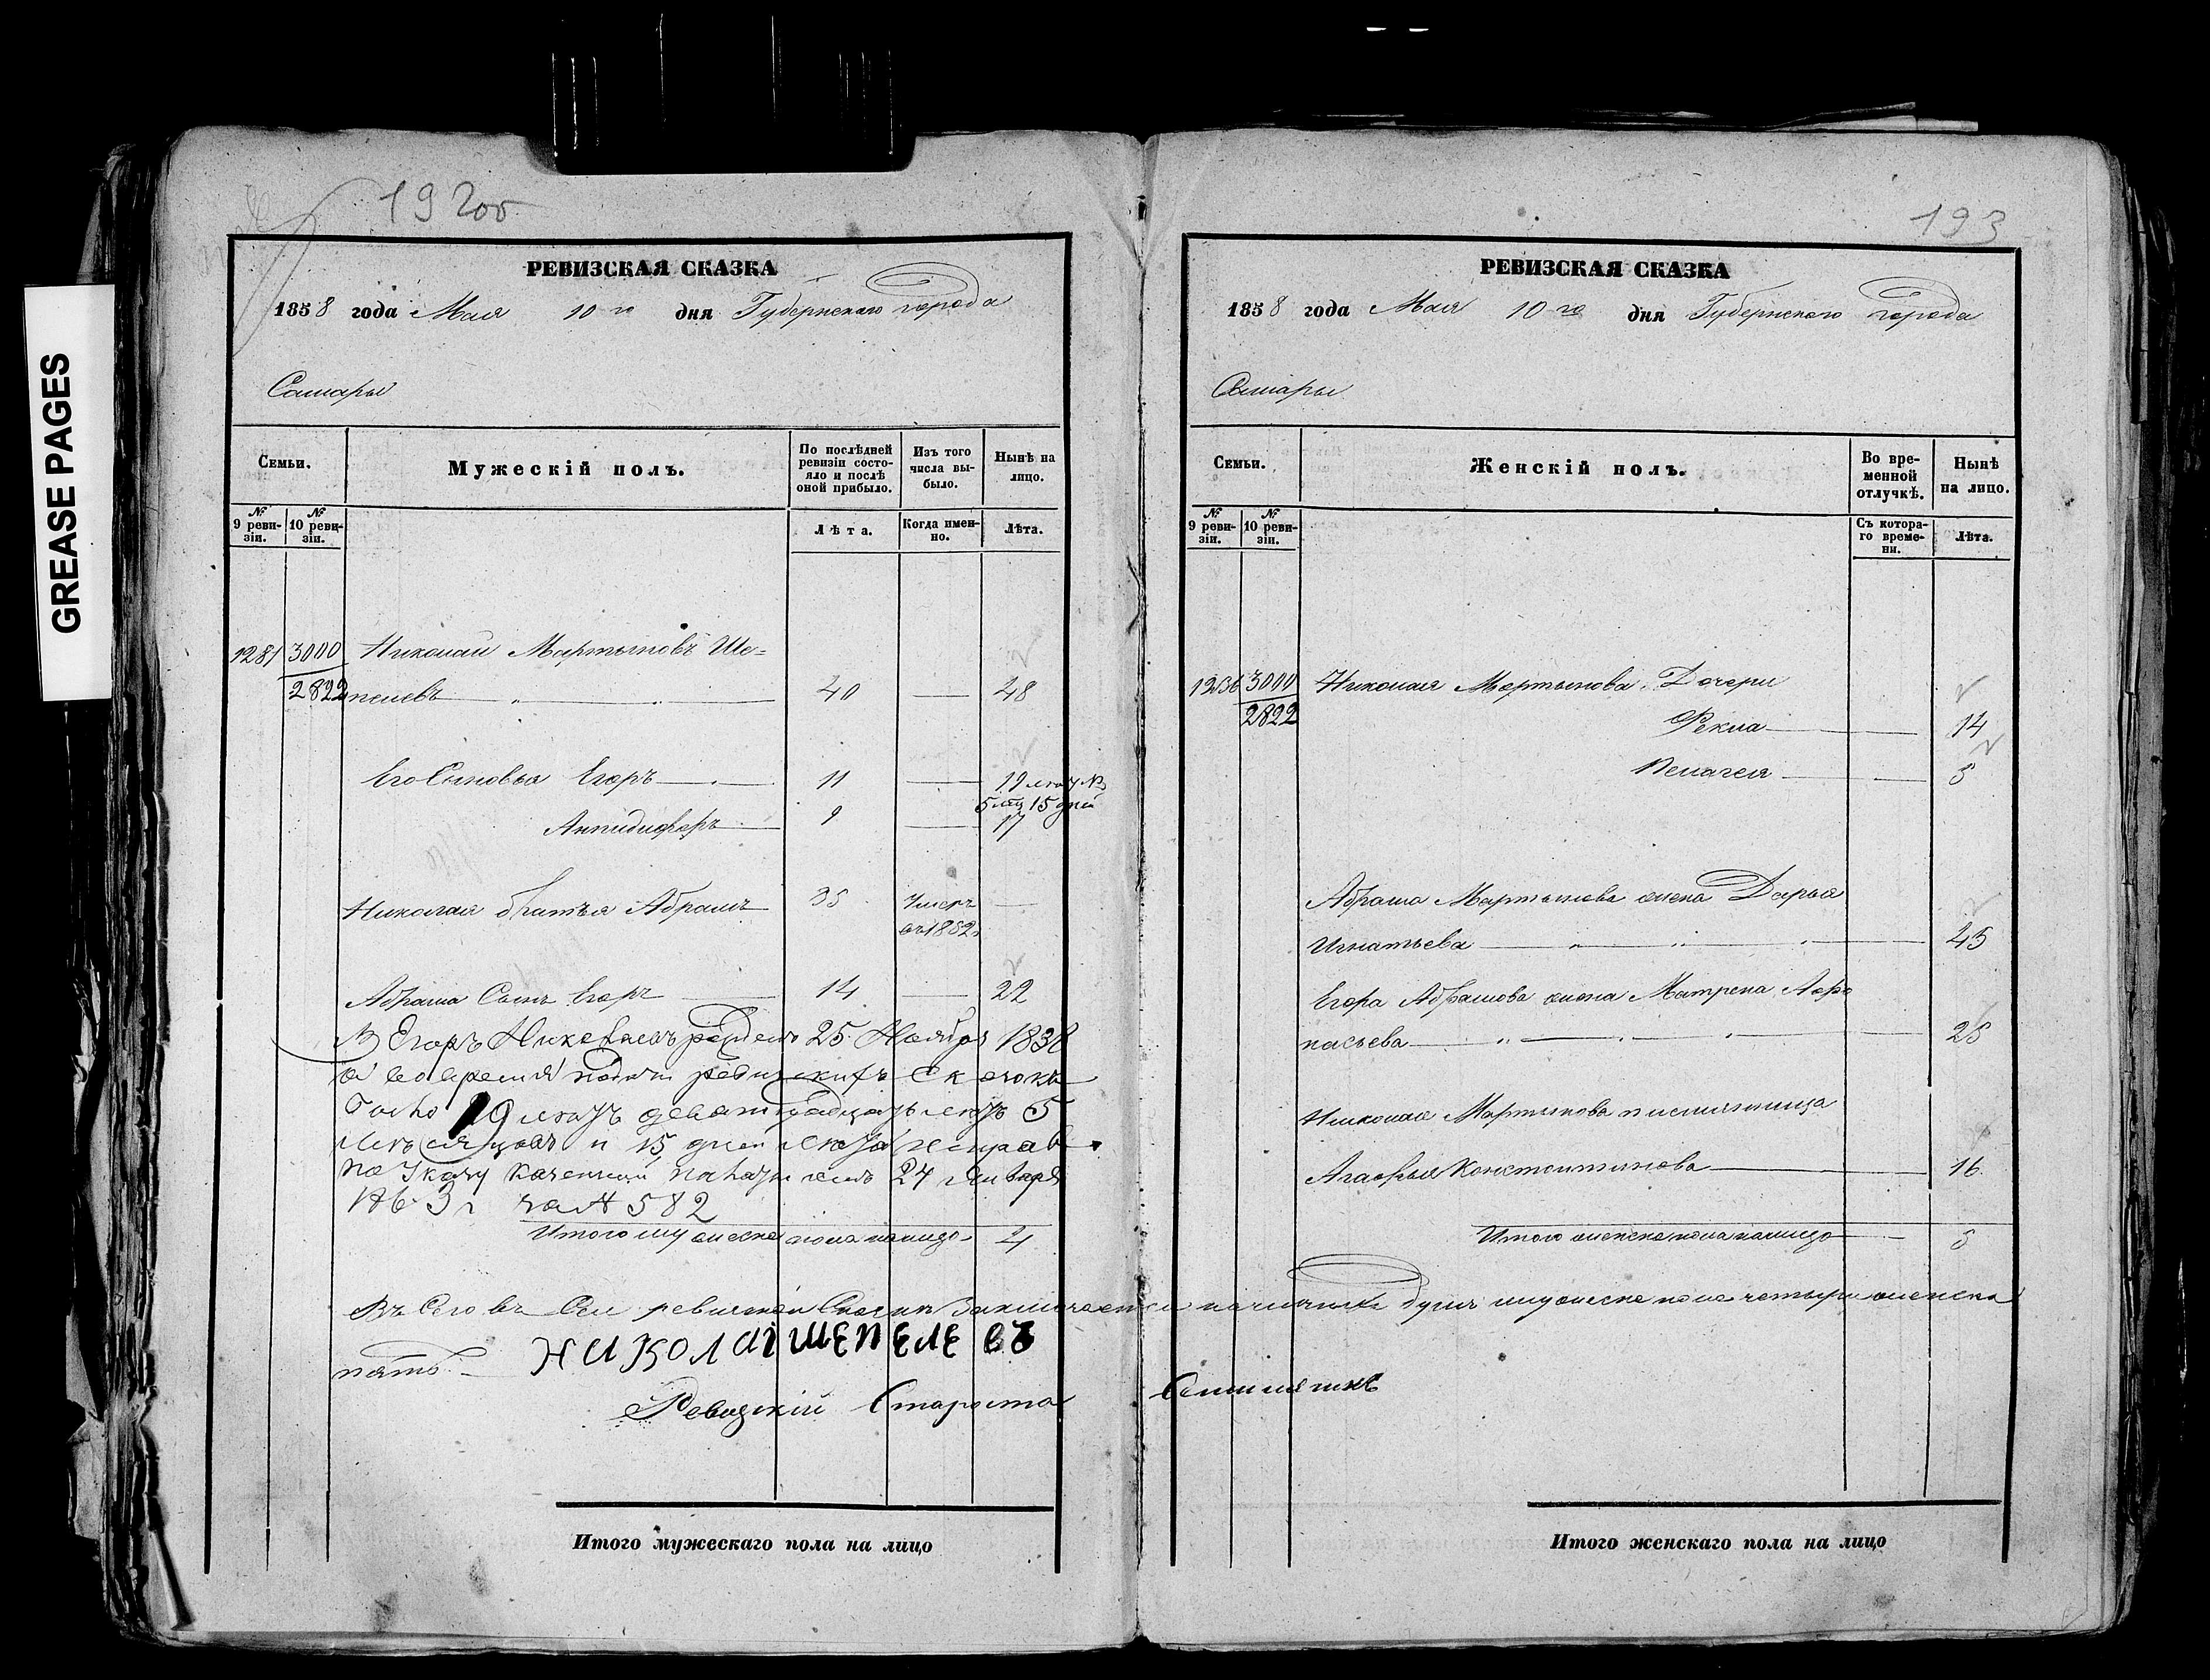 GREASE PAGES
192об
РЕВИЗСКАЯ СКАЗКА
1858 года Мая 10го дня Губернскаго города
Самары
Семьи.
Мужескій полъ.
По послѣдней ревизіи состояло и послѣ оной прибыло.
Изъ того числа выбыло.
Нынѣ на лицо.
№ 9 ревизіи.
№ 10 ревизіи.
Лѣта.
Когда именно.
Лѣта.
1281 3000 Николай Мартыновъ Ше=
2822 пелевъ 40 — 48
Его Сыновья Егоръ 11 — 19
5 мц 15 дней
Анпидифоръ 9 — 17
Николая братья Абрамъ 35 Умеръ
въ 1852
Абрама Сынъ Егоръ 14 — 22
Егоръ Николаевъ рожденъ 25 Ноября 1838
а во время подачи ревизскихъ сказокъ
было 19 летъ девятнадцать летъ 5
месяцовъ и 15 дней
по Указу казенной палаты 24 Января
за № 582
Итого мужеска пола налицо 4
Въ Сего въ Сей ревизской Сказки Заключается налицо душъ мужеска пола четыре женска
пять. НИКОЛАІ ШЕПЕЛЕВЪ
Ревизскій Староста
193
РЕВИЗСКАЯ СКАЗКА
1858 года Мая 10го дня Губернскаго города
Самары
Семьи.
Женскій полъ.
Во временной отлучкѣ.
Нынѣ на лицо.
№ 9 ревизіи.
№ 10 ревизіи.
Съ котораго времени.
Лѣта.
3000 Николая Мартынова Дочери
2822 Фекла 14
Пелагея 5
Абрама Мартынова жена Дарья
Игнатьева 45
Егора Абрамова жена Матрена
25
Николая Мартынова племянница
Агафья Константинова 16
Итого женска пола налицо 5
Итого мужескаго пола на лицо
Итого женскаго пола на лицо